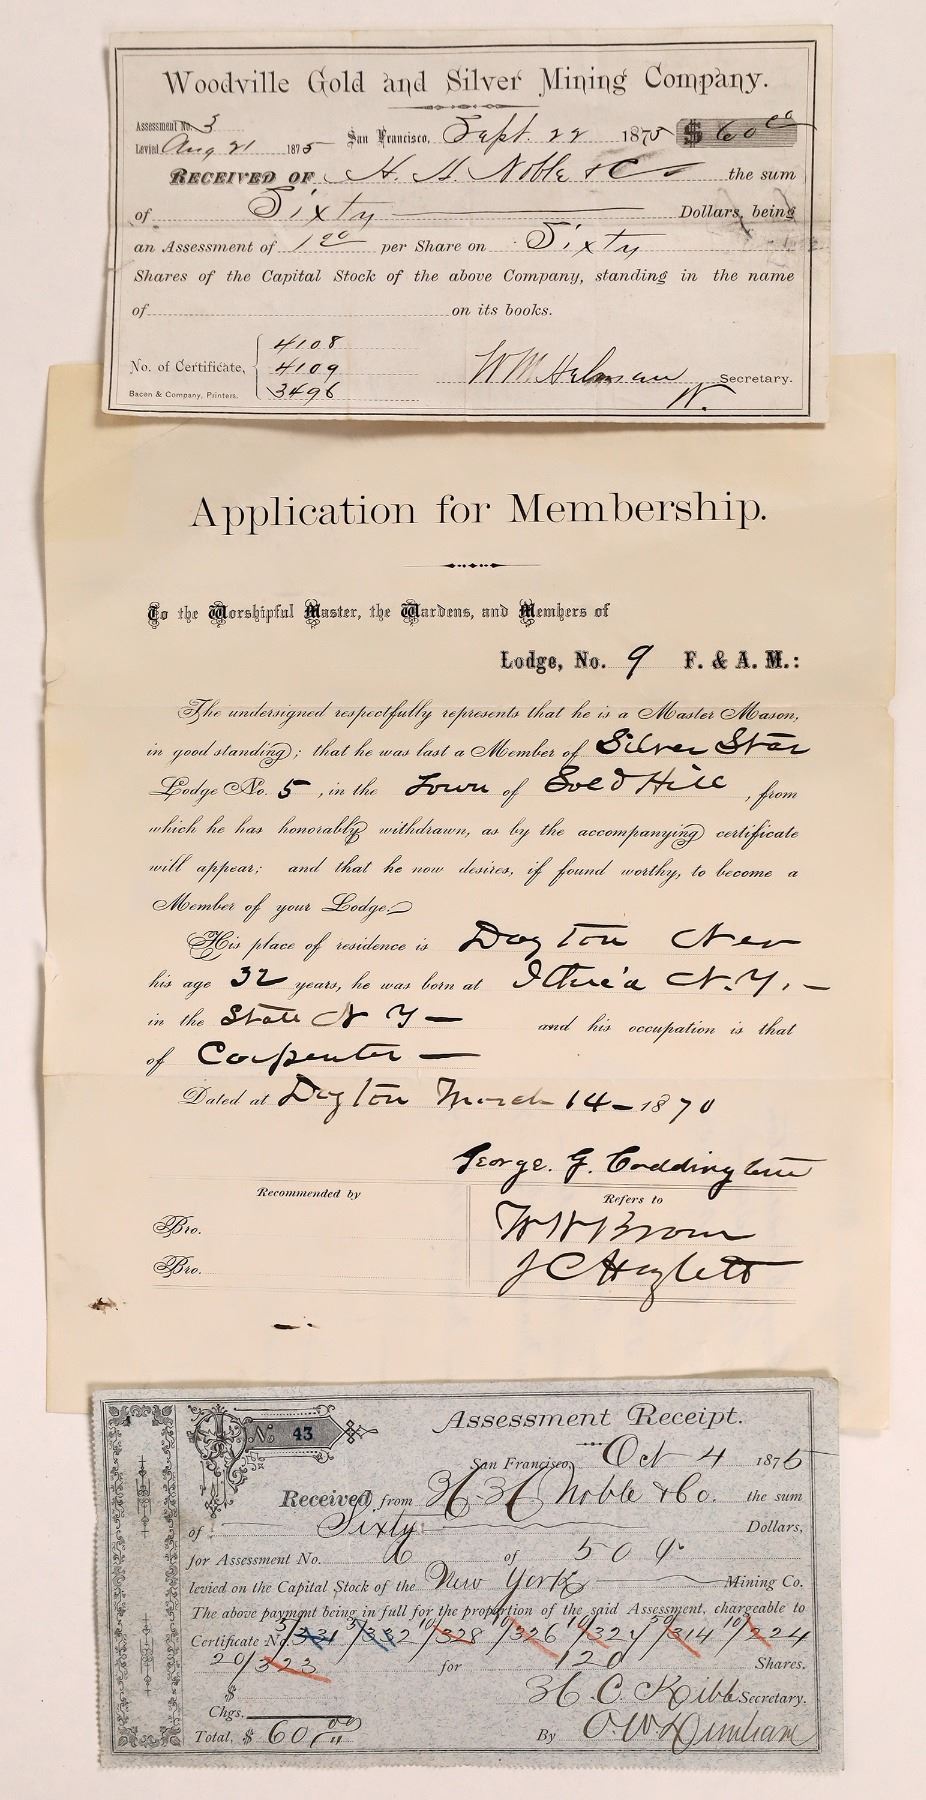 Woodville Gold and Silver Mining Company.
Assessment No. 3
Levied Aug 21 1875 San Francisco, Sept. 22 1875 $ 60 00
RECEIVED OF H. H. Noble & Co the sum
of Sixty Dollars, being
an Assessment of 1 00 per Share on Sixty
Shares of the Capital Stock of the above Company, standing in the name
of on its books.
No. of Certificate, 4108
4109
3496
W M Helman Secretary.
W.
Bacon & Company, Printers.
Application for Membership.
To the Worshipful Master, the Wardens, and Members of
Lodge, No. 9 F. & A. M.:
The undersigned respectfully represents that he is a Master Mason,
in good standing; that he was last a Member of Silver Star
Lodge No. 5, in the Town of Gold Hill, from
which he has honorably withdrawn, as by the accompanying certificate
will appear; and that he now desires, if found worthy, to become a
Member of your Lodge.
His place of residence is Dayton Nev
his age 32 years, he was born at N.Y.
in the State N Y and his occupation is that
of Carpenter
Dated at Dayton March 14 - 1870
George. G. Coddington
Recommended by Refers to
Bro. W W Brown
Bro. J C Hazlett
Assessment Receipt.
No 43
San Francisco, Oct 4 1875
Received from H H Noble & Co. the sum
of Sixty Dollars,
for Assessment No. 6 of 50 c.
levied on the Capital Stock of the New York Mining Co.
The above payment being in full for the proportion of the said Assessment, chargeable to
Certificate No. 5/331 5/332 10/328 10/326 10/322 50/314 10/224
20/323 for 120 Shares.
$
H. C. Kibbe Secretary.
Chgs.
Total, $ 60 00 By